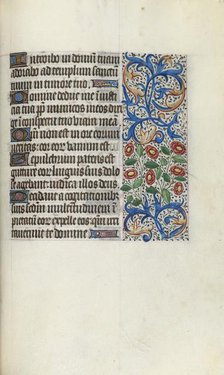 Introibo in domum tuam
adorabo ad templum sanctum
tuum in timore tuo,
Domine deduc me in iusti
cia tua propter inimicos meos diri
ge in conspectu tuo viam mea
Quoniam non est in ore eorum
veritas: cor eorum vanum est
Sepulcrum patens est
guttur eorum linguis suis dolo
se agebant: iudica illos deus
Decidant a cogitationibus
suis secundum multitudinem im
pietatum eorum expelle eos: quoniam irri
taverunt te domine